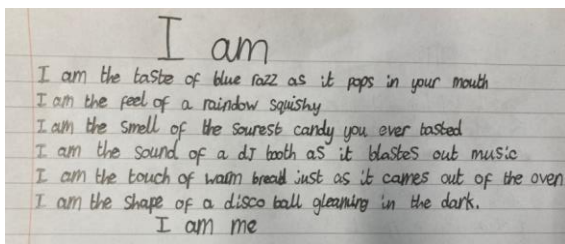 I am
I am the taste of blue razz as it pops in your mouth
I am the feel of a raindow squishy
I am the smell of the sourest candy you ever tasted
I am the sound of a dJ booth as it blastes out music
I am the touch of warm bread just as it cames out of the oven
I am the shape of a disco ball gleaming in the dark.
I am me